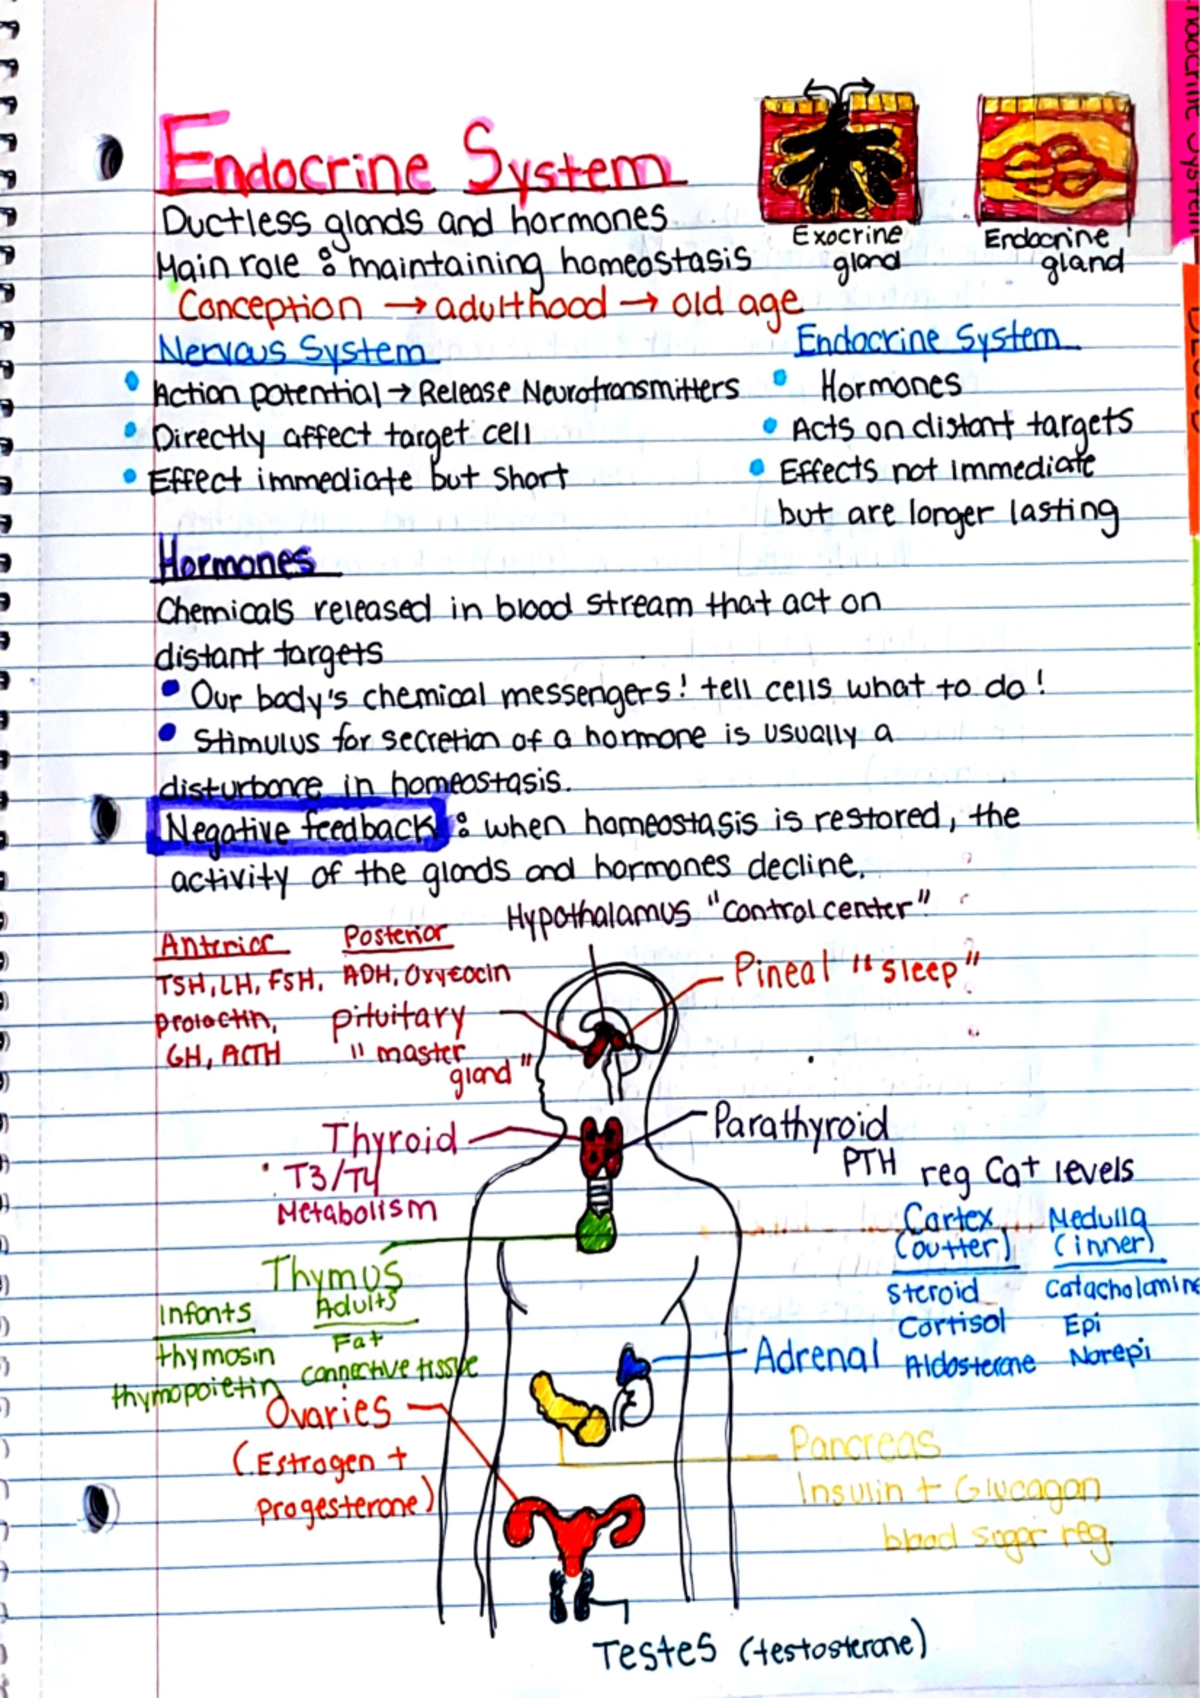 Endocrine System
Exocrine gland
Endocrine gland
Ductless glands and hormones
Main role : maintaining homeostasis
Conception → adulthood → old age
Nervous System
• Action potential → Release Neurotransmitters
• Directly affect target cell
• Effect immediate but short
Endocrine System
• Hormones
• Acts on distant targets
• Effects not immediate
but are longer lasting
Hormones
Chemicals released in blood stream that act on
distant targets
• Our body's chemical messengers! tell cells what to do!
• Stimulus for secretion of a hormone is usually a
disturbance in homeostasis.
Negative feedback : when homeostasis is restored, the
activity of the glands and hormones decline.
Hypothalamus "control center"
Anterior
TSH, LH, FSH,
prolactin,
GH, ACTH
Posterior
ADH, Oxytocin
pituitary
"master
gland"
Pineal "sleep"
Thyroid
T3/T4
Metabolism
Parathyroid
PTH reg Ca+ levels
Thymus
Infants
thymosin
thymopoietin
Adults
Fat
connective tissue
Cortex
(outter)
Steroid
Cortisol
Aldosterone
Medulla
(inner)
Catacholamine
Epi
Norepi
Adrenal
Ovaries
(Estrogen +
progesterone)
Pancreas
Insulin + Glucagon
blood sugar reg.
Testes (testosterone)